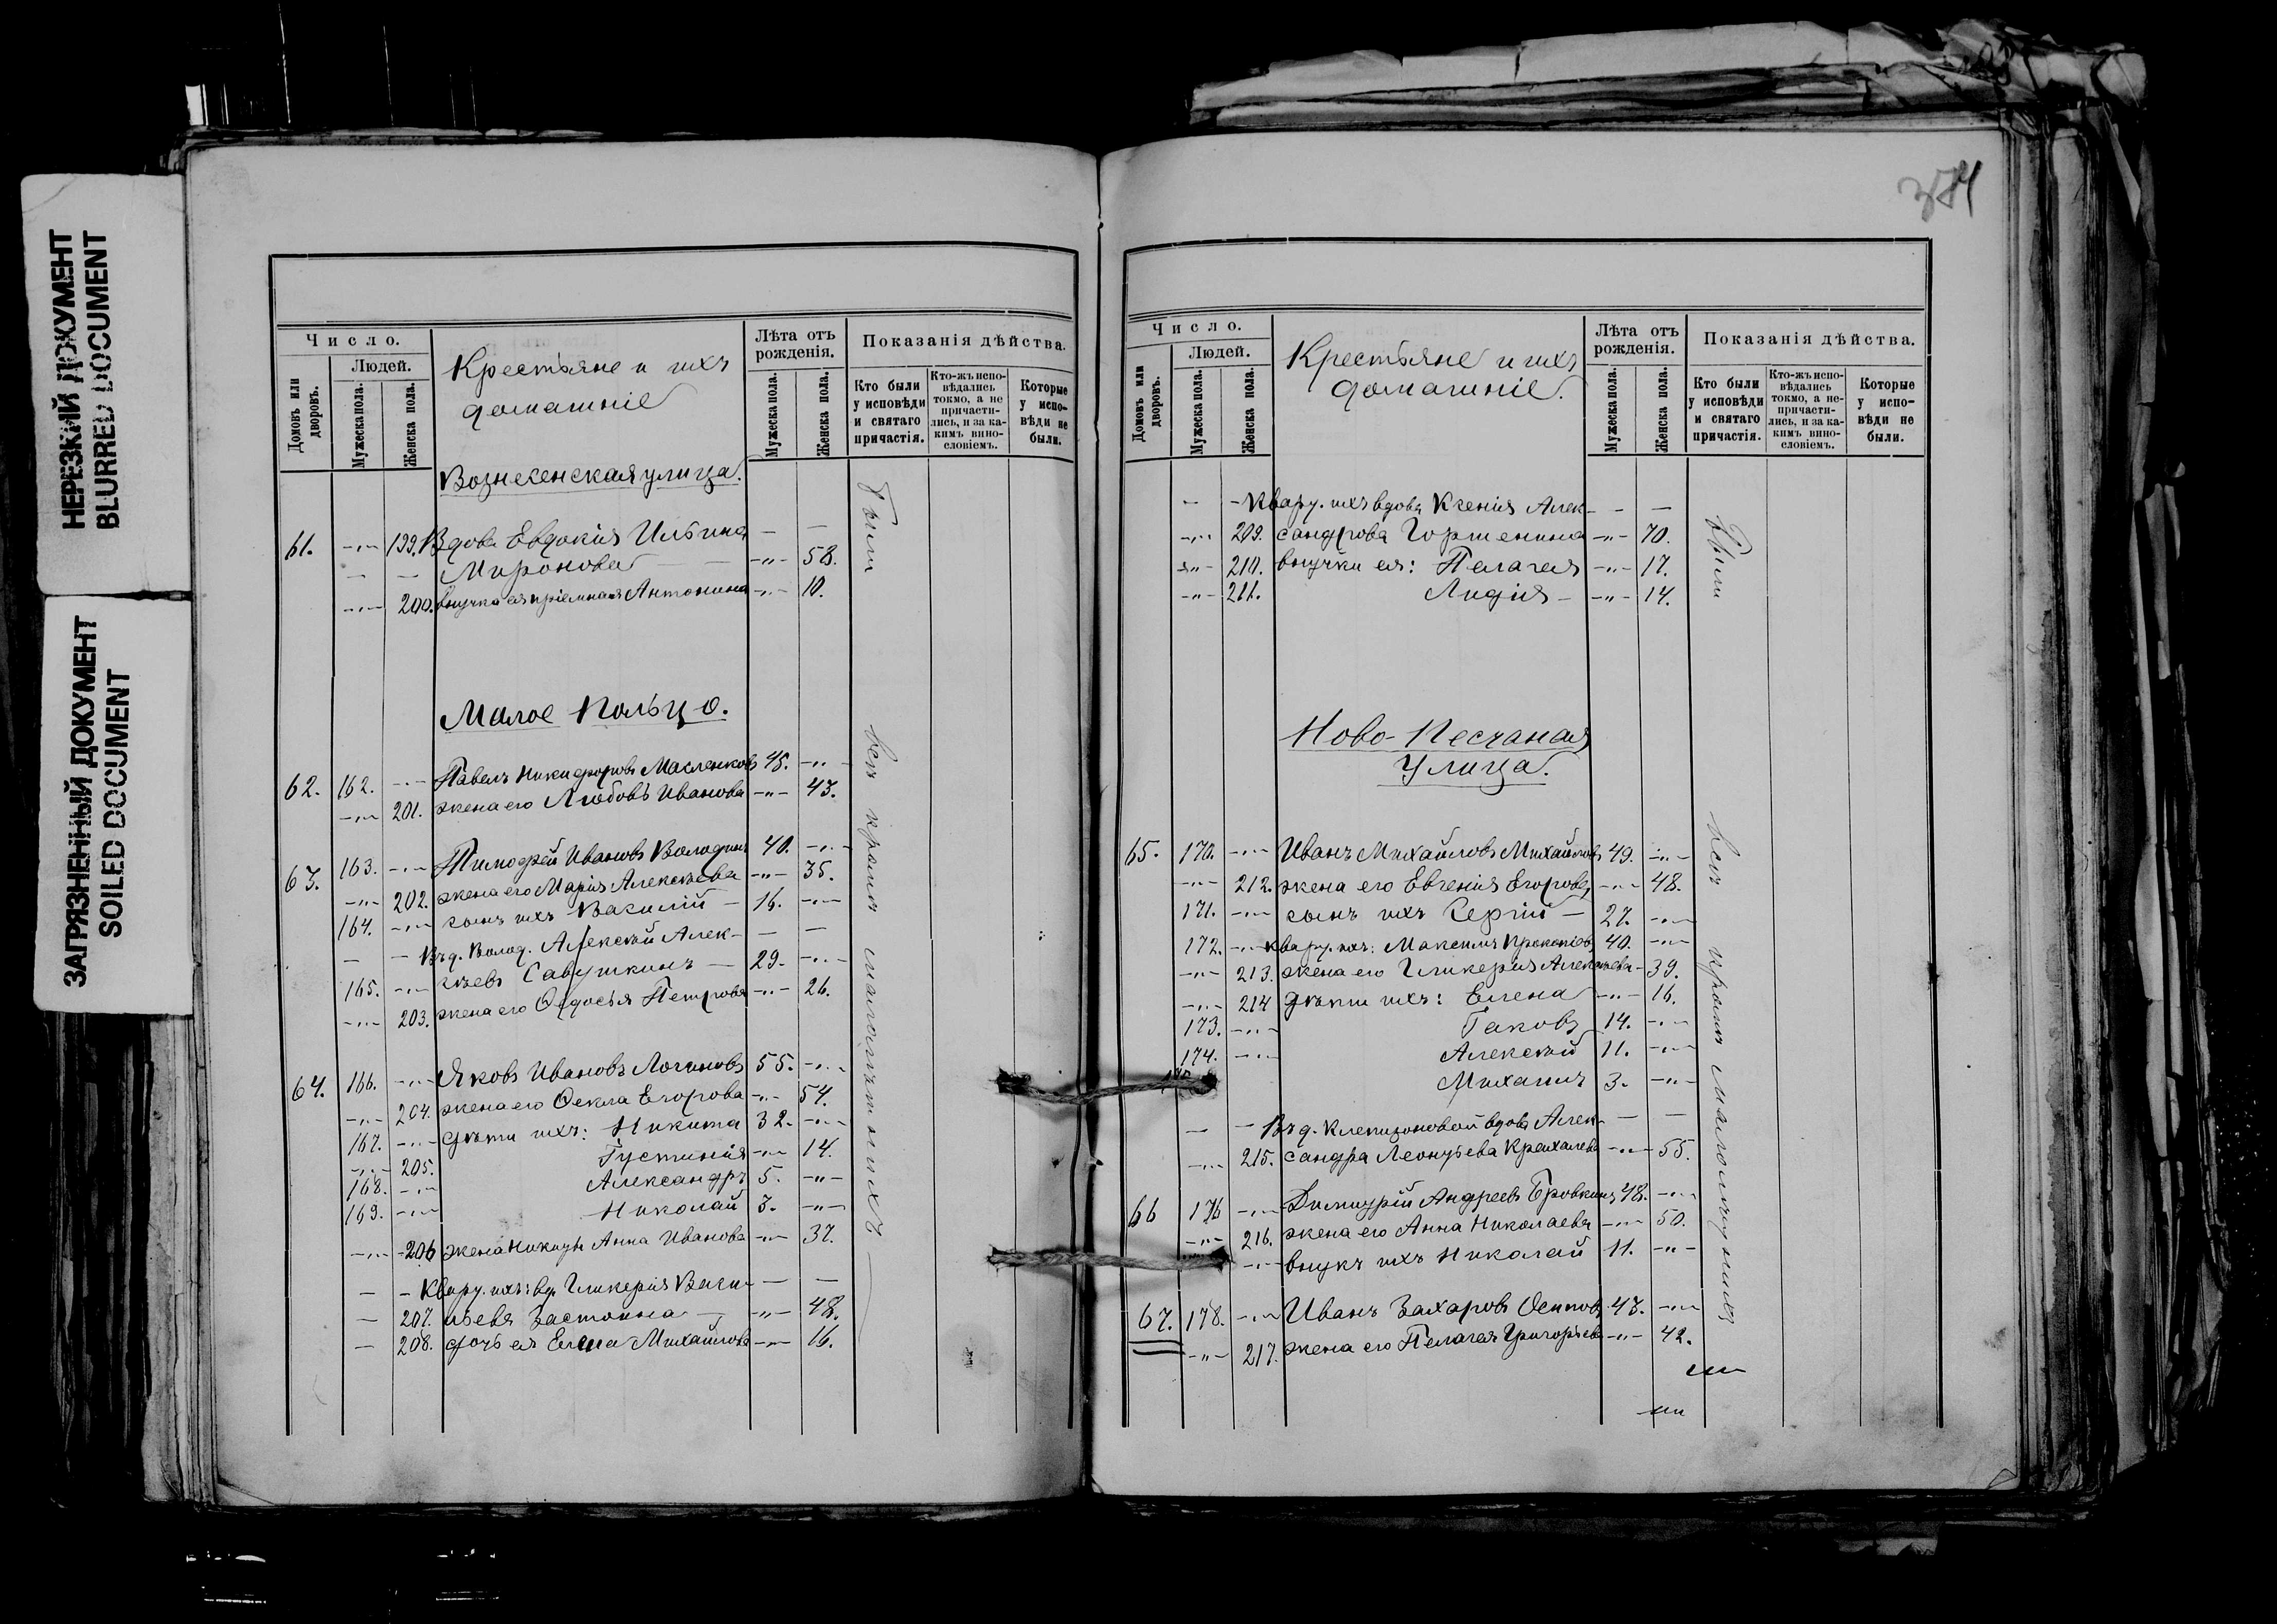 НЕРЕЗКИЙ ДОКУМЕНТ
BLURRED DOCUMENT
ЗАГРЯЗНЕННЫЙ ДОКУМЕНТ
SOILED DOCUMENT
Число.
Людей.
Домовъ или дворовъ.
Мужеска пола.
Женска пола.
Крестьяне и ихъ
домашніе
Лѣта отъ рожденія.
Мужеска пола.
Женска пола.
Показанія дѣйства.
Кто были у исповѣди и святаго причастія.
Кто-жъ исповѣдались токмо, а не причастились, и за какимъ винословіемъ.
Которые у исповѣди не были.
Вознесенская улица.
61. -„- 199. Вдова Евдокія Ильина — —
— — Миронова -„- 58.
-„- 200. внучка ея пріемная Антонина -„- 10.
были
Малое Кольцо.
62. 162. -„- Павелъ Никифоровъ Масленковъ 45. -„-
-„- 201. жена его Любовь Иванова -„- 43.
63. 163. -„- Тимофей Ивановъ Володинъ 40. -„-
-„- 202. жена его Марія Алексѣева -„- 35.
164. -„- сынъ ихъ Василій — 16. -„-
— — Въ д. Волод. Алексѣй Алек- — —
165. -„- сѣевъ Савушкинъ — 29. -„-
-„- 203. жена его Ѳедосья Петрова -„- 26.
64. 166. -„- Яковъ Ивановъ Логиновъ 55. -„-
-„- 204. жена его Ѳекла Егорова -„- 54.
167. -„- дѣти ихъ: Никита 32. -„-
-„- 205. Іустинія -„- 14.
168. -„- Александръ 5. -„-
169. -„- Николай 3. -„-
-„- 206 жена Никиты Анна Иванова -„- 37.
— - Кварт. ихъ: вд. Гликерія Васи- — —
— 207. льева Застоина -„- 48.
— 208. дочь ея Елена Михайлова -„- 16.
всѣ кромѣ малолѣтнихъ
384
Число.
Людей.
Домовъ или дворовъ.
Мужеска пола.
Женска пола.
Крестьяне и ихъ
домашніе.
Лѣта отъ рожденія.
Мужеска пола.
Женска пола.
Показанія дѣйства.
Кто были у исповѣди и святаго причастія.
Кто-жъ исповѣдались токмо, а не причастились, и за какимъ винословіемъ.
Которые у исповѣди не были.
— - Кварт. ихъ вдова Ксенія Алек- — —
-„- 209. сандрова Горшенина -„- 70.
-„- 210. внучки ея: Пелагея -„- 17.
-„- 211. Лидія — -„- 14.
были
Ново-Песчаная
улица.
65. 170. -„- Иванъ Михайловъ Михайловъ 49. -„-
-„- 212. жена его Евгенія Егорова -„- 48.
171. -„- сынъ ихъ Сергій — 27. -„-
172. -„- кварт. ихъ: Максимъ Прокопіевъ 40. -„-
-„- 213. жена его Гликерія Алексѣева - 39.
-„- 214 дѣти ихъ: Елена -„- 16.
173. -„- Іаковъ 14. -„-
174. -„- Алексѣй 11. -„-
Михаилъ 3. -„-
— - Въ д. вдова Алек- — —
-„- 215. сандра Леонтьева -„- 55.
66 176 -„- Димитрій Андреевъ Бровкинъ 48. -„-
-„- 216. жена его Анна Николаева -„- 50.
-„- внукъ ихъ Николай 11. -„-
67. 178. -„- Иванъ Захаровъ Осиповъ 47. -„-
-„- 217. жена его Пелагея Григорьева -„- 42.
всѣ кромѣ малолѣтнихъ